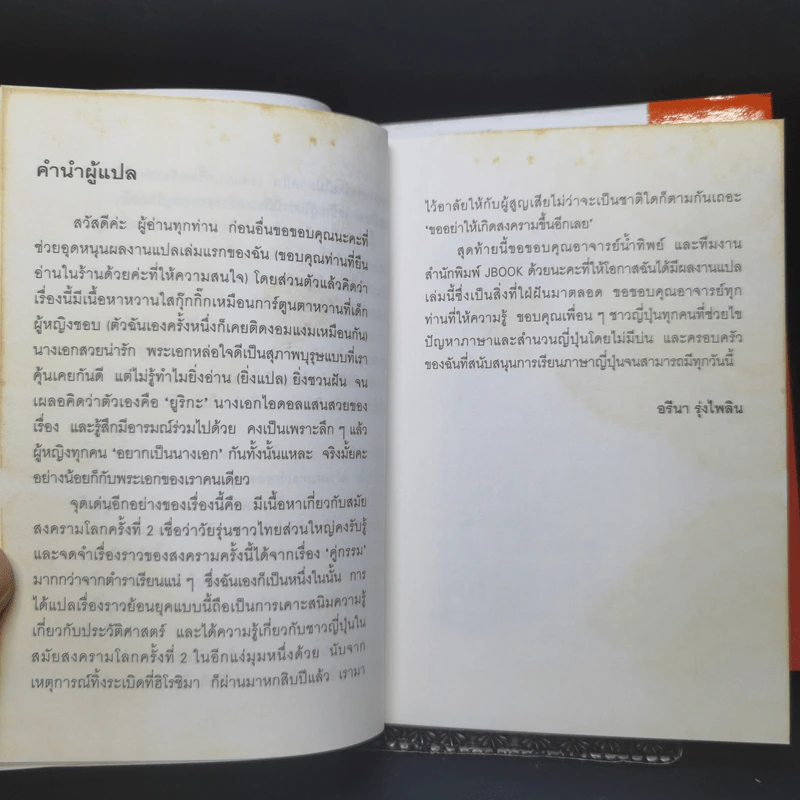 คำนำผู้แปล
สวัสดีค่ะ ผู้อ่านทุกท่าน ก่อนอื่นขอขอบคุณนะคะที่
ช่วยอุดหนุนผลงานแปลเล่มแรกของฉัน (ขอบคุณท่านที่ยืน
อ่านในร้านด้วยค่ะที่ให้ความสนใจ) โดยส่วนตัวแล้วคิดว่า
เรื่องนี้มีเนื้อหาหวานใสกุ๊กกิ๊กเหมือนการ์ตูนตาหวานที่เด็ก
ผู้หญิงชอบ (ตัวฉันเองครั้งหนึ่งก็เคยติดงอมแงมเหมือนกัน)
นางเอกสวยน่ารัก พระเอกหล่อใจดีเป็นสุภาพบุรุษแบบที่เรา
คุ้นเคยกันดี แต่ไม่รู้ทำไมยิ่งอ่าน (ยิ่งแปล) ยิ่งชวนฝัน จน
เผลอคิดว่าตัวเองคือ ‘ยูริกะ’ นางเอกไอดอลแสนสวยของ
เรื่อง และรู้สึกมีอารมณ์ร่วมไปด้วย คงเป็นเพราะลึก ๆ แล้ว
ผู้หญิงทุกคน ‘อยากเป็นนางเอก’ กันทั้งนั้นแหละ จริงมั้ยคะ
อย่างน้อยก็กับพระเอกของเราคนเดียว
จุดเด่นอีกอย่างของเรื่องนี้คือ มีเนื้อหาเกี่ยวกับสมัย
สงครามโลกครั้งที่ 2 เชื่อว่าวัยรุ่นชาวไทยส่วนใหญ่คงรับรู้
และจดจำเรื่องราวของสงครามครั้งนี้ได้จากเรื่อง ‘คู่กรรม’
มากกว่าจากตำราเรียนแน่ ๆ ซึ่งฉันเองก็เป็นหนึ่งในนั้น การ
ได้แปลเรื่องราวย้อนยุคแบบนี้ถือเป็นการเคาะสนิมความรู้
เกี่ยวกับประวัติศาสตร์ และได้ความรู้เกี่ยวกับชาวญี่ปุ่นใน
สมัยสงครามโลกครั้งที่ 2 ในอีกแง่มุมหนึ่งด้วย นับจาก
เหตุการณ์ทิ้งระเบิดที่ฮิโรชิมา ก็ผ่านมาหกสิบปีแล้ว เรามา
ไว้อาลัยให้กับผู้สูญเสียไม่ว่าจะเป็นชาติใดก็ตามกันเถอะ
‘ขออย่าให้เกิดสงครามขึ้นอีกเลย’
สุดท้ายนี้ขอขอบคุณอาจารย์น้ำทิพย์ และทีมงาน
สำนักพิมพ์ JBOOK ด้วยนะคะที่ให้โอกาสฉันได้มีผลงานแปล
เล่มนี้ซึ่งเป็นสิ่งที่ใฝ่ฝันมาตลอด ขอขอบคุณอาจารย์ทุก
ท่านที่ให้ความรู้ ขอบคุณเพื่อน ๆ ชาวญี่ปุ่นทุกคนที่ช่วยไข
ปัญหาภาษาและสำนวนญี่ปุ่นโดยไม่มีบ่น และครอบครัว
ของฉันที่สนับสนุนการเรียนภาษาญี่ปุ่นจนสามารถมีทุกวันนี้
อรีนา รุ่งไพลิน